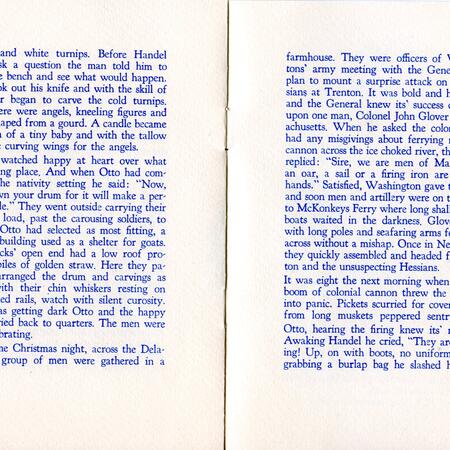 and white turnips. Before Handel
sk a question the man told him to
e bench and see what would happen.
ok out his knife and with the skill of
r began to carve the cold turnips.
ere were angels, kneeling figures and
aped from a gourd. A candle became
n of a tiny baby and with the tallow
e curving wings for the angels.
watched happy at heart over what
ing place. And when Otto had com-
he nativity setting he said: "Now,
wn your drum for it will make a per-
le." They went outside carrying their
load, past the carousing soldiers, to
Otto had selected as most fitting, a
building used as a shelter for goats.
cks' open end had a low roof pro-
piles of golden straw. Here they pa-
arranged the drum and carvings as
with their chin whiskers resting on
ed rails, watch with silent curosity.
as getting dark Otto and the happy
ried back to quarters. The men were
brating.
me Christmas night, across the Dela-
group of men were gathered in a
farmhouse. They were officers of W
tons' army meeting with the Gene
plan to mount a surprise attack on
sians at Trenton. It was bold and h
and the General knew its' success d
upon one man, Colonel John Glover
achusetts. When he asked the colon
had any misgivings about ferrying m
cannon across the ice choked river, th
replied: "Sire, we are men of Ma
an oar, a sail or a firing iron are
hands." Satisfied, Washington gave t
and soon men and artillery were on t
to McKonkeys Ferry where long shal
boats waited in the darkness. Glov
with long poles and seafaring arms fo
across without a mishap. Once in Ne
they quickly assembled and headed f
ton and the unsuspecting Hessians.
It was eight the next morning when
boom of colonial cannon threw the
into panic. Pickets scurried for cover
from long muskets peppered sentr
Otto, hearing the firing knew its' r
Awaking Handel he cried, "They are
ing! Up, on with boots, no uniform
grabbing a burlap bag he slashed h